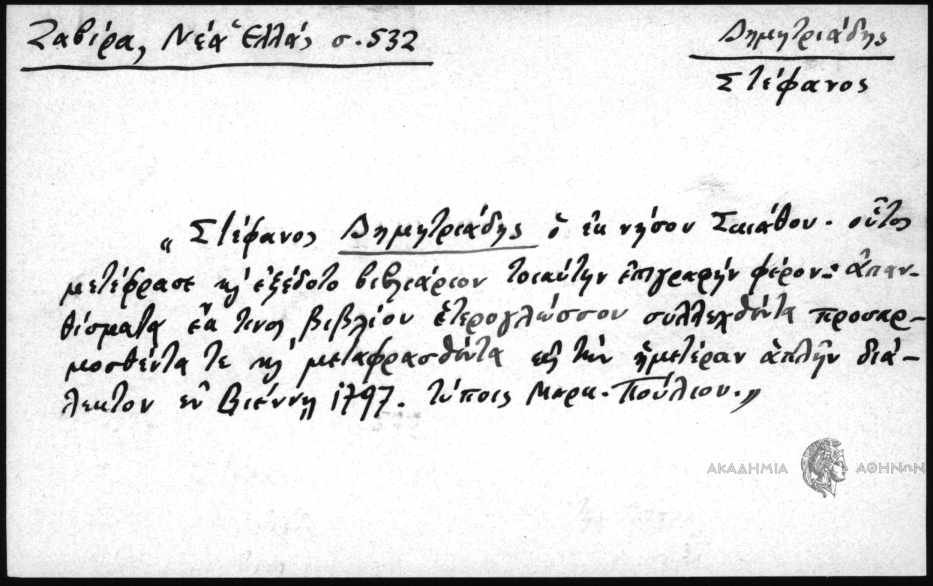 Ζαβίρα, Νέα Ἑλλάς σ. 532
Δημητριάδης
Στέφανος
„ Στέφανος Δημητριάδης ὁ ἐκ νήσου Σκιάθου· οὗτος
μετέφρασε κ̀ ἐξέδοτο βιβλιάριον τοιαύτην ἐπιγραφήν φέρον· ἀπαν-
θίσματα ἔκ τινος βιβλίου ἑτερογλώσσου συλλεχθέντα προσαρ-
μοσθέντα τε κ̀ μεταφρασθέντα εἰς τὴν ἡμετέραν ἁπλῆν διά-
λεκτον ἐν Βιέννῃ 1797. τύποις Μαρκ. Πούλιου.„
ΑΚΑΔΗΜΙΑ ΑΘΗΝΩΝ